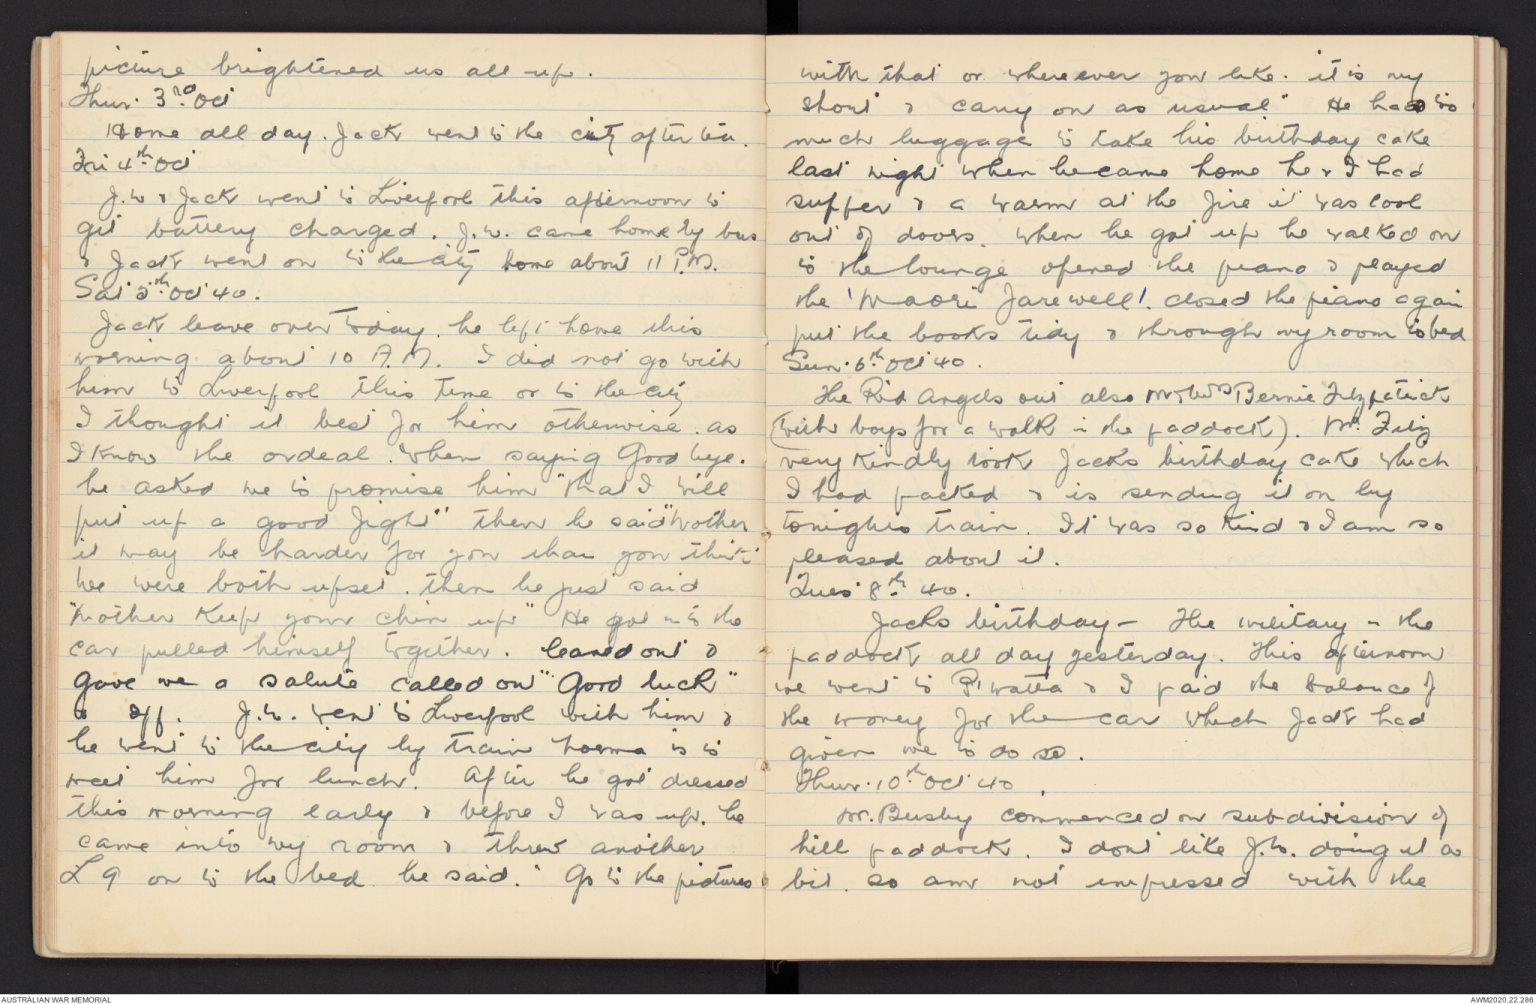 picture brightened us all up.
Thur. 3rd Oct
Home all day. Jack went to the city after tea.
Fri 4th Oct
J.W. & Jack went to Liverpool this afternoon to
get battery charged. J.W. came home by bus
& Jack went on to the city home about 11 P.M.
Sat 5th Oct 40.
Jack leave over today. he left home this
morning about 10 A.M. I did not go with
him to Liverpool this time or to the city
I thought it best for him otherwise. as
I know the ordeal. when saying Good bye.
he asked me to promise him "that I will
put up a good fight" then he said "Mother
it may be harder for you than you think"
we were both upset. then he just said
"Mother keep your chin up" He got in to the
car pulled himself together. leaned out &
gave me a salute called on "Good luck"
& off. J.W. went to Liverpool with him &
he went to the city by train Norma is to
meet him for lunch. After he got dressed
this morning early & before I was up. he
came into my room & threw another
£9 on to the bed he said. "Go to the pictures
with that or wherever you like. it is my
shout & carry on as usual" He had to
much luggage to take his birthday cake
last night when he came home he & I had
supper & a warm at the fire it was cool
out of doors. when he got up he walked on
to the lounge opened the piano & played
the 'Maori Farewell'. closed the piano again
put the books tidy & through my room to bed
Sun. 6th Oct 40.
The Rid Angels out also Mr & Mrs Bernie Fitzpatrick
(with boys for a walk in the paddock). Mr. Fitz
very kindly took Jacks birthday cake which
I had packed & is sending it on by
tonights train. It was so kind & I am so
pleased about it.
Tues 8th 40.
Jacks birthday – The military in the
paddock all day yesterday. This afternoon
we went to P'matta & I paid the balance of
the money for the car which Jack had
given me to do so.
Thur. 10th Oct 40.
Mr. Busby commenced on subdivision of
hill paddock. I dont like J.W. doing it a
bit. so am not impressed with the
AUSTRALIAN WAR MEMORIAL
AWM2020.22.286